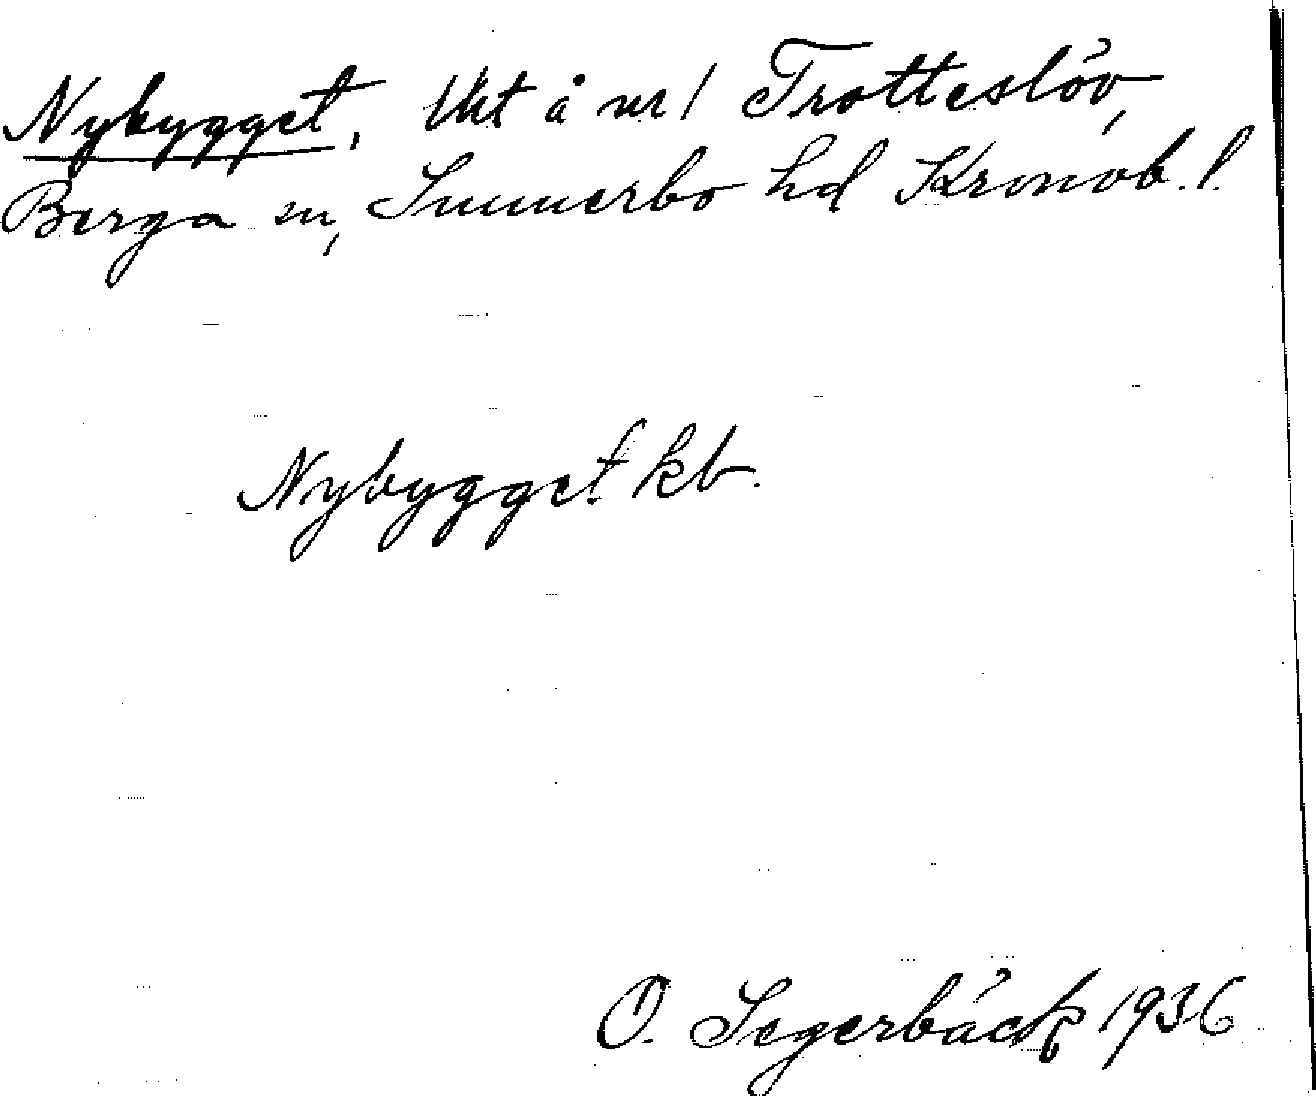 Nybygget, Utkt å nr 1 Trotteslöv,
Berga sn, Sunnerbo hd Kronob. l.
Nybygget kb.
O. Segerbäck 1936